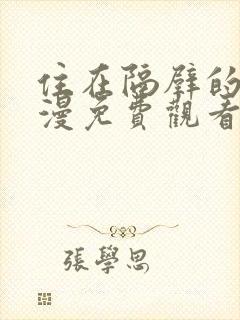 住在隔壁的
漫免費觀看
張學思